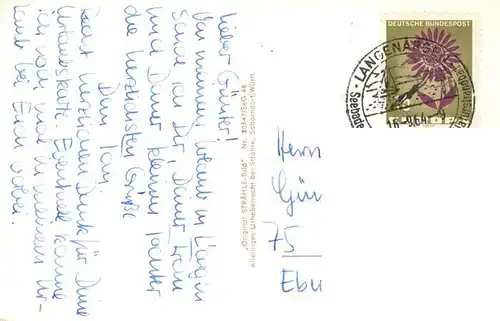 Lieber Günter!
Aus meinem Urlaub in Langen
sende ich Dir, Deiner Frau
und Deiner kleinen Tochter
die herzlichsten Grüße
Dein
Recht herzlichen Dank für Deine
Urlaubskarte. Eventuell komme
ich noch in meinem Ur-
laub bei Euch vorbei.
"Original STRÄHLE-Bild" Nr. 20847/SaG 48
Alleiniges Urheberrecht bei Strähle, Schorndorf/Württ.
DEUTSCHE BUNDESPOST
LANGENARGEN
16.9.64
Herrn
Gün
75
Ebu